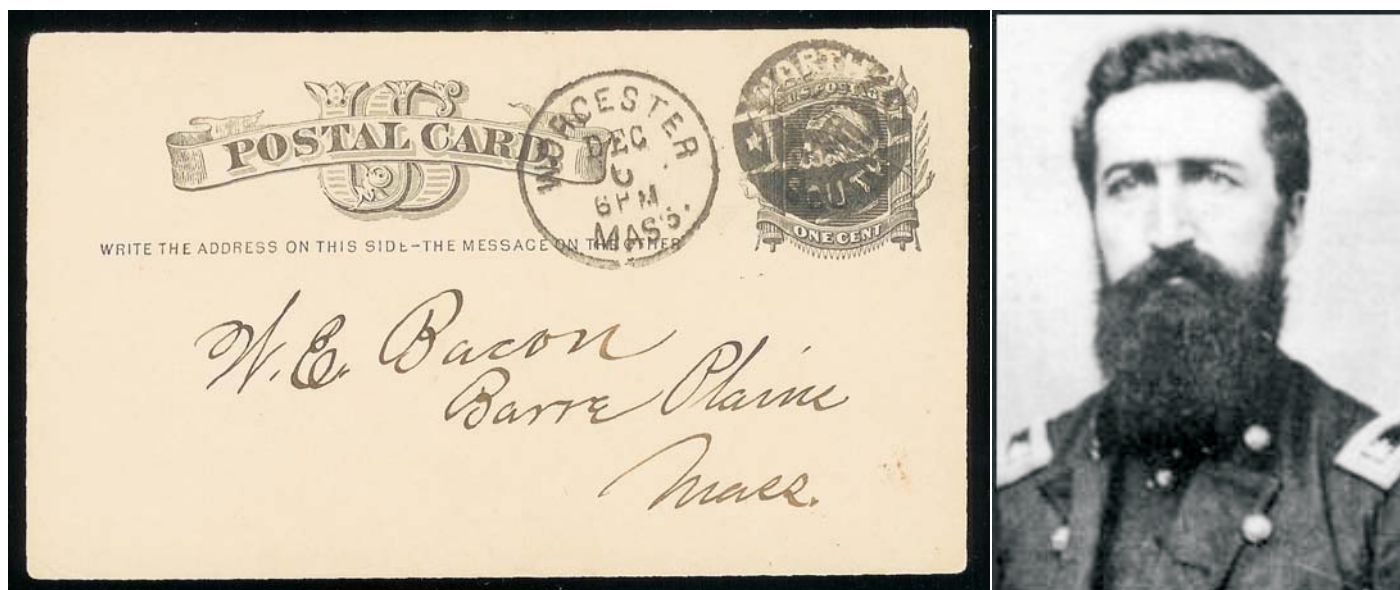 US
POSTAL CARD
WORCESTER
DEC
6 PM
MASS.
U.S. POSTAGE
ONE CENT
WRITE THE ADDRESS ON THIS SIDE-THE MESSAGE ON THE OTHER
W. E. Bacon
Barre Plains
Mass.